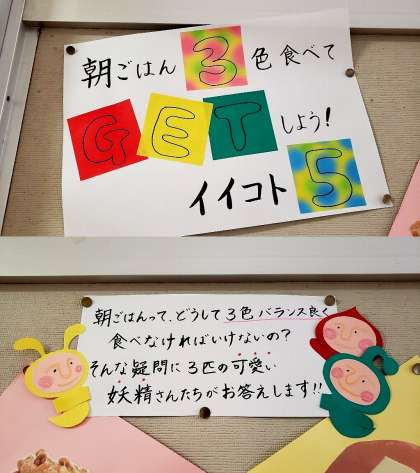 朝ごはん3色食べて
GETしよう!
イイコト5
朝ごはんって、どうして3色バランス良く
食べなければいけないの?
そんな疑問に3匹の可愛い
妖精さんたちがお答えします!!